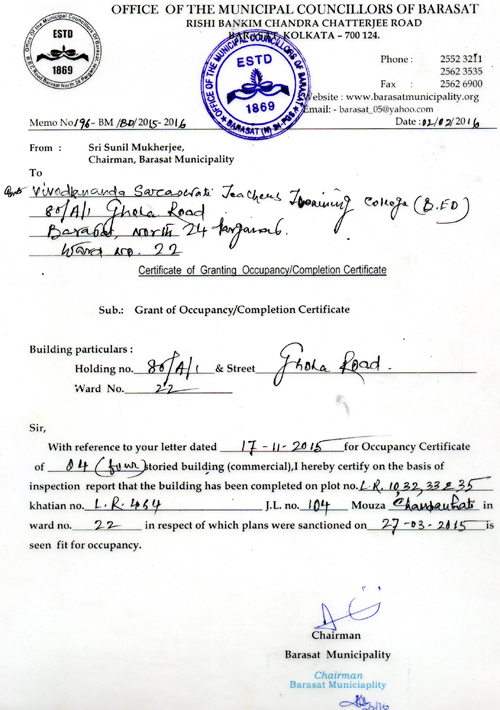 OFFICE OF THE MUNICIPAL COUNCILLORS OF BARASAT
RISHI BANKIM CHANDRA CHATTERJEE ROAD
BARASAT, KOLKATA – 700 124.
ESTD
1869
OFFICE OF THE MUNICIPAL COUNCILLORS OF BARASAT
ESTD
1869
BARASAT (N) 24-PGS
Phone : 2552 3211
2562 3535
Fax : 2562 6900
Website : www.barasatmunicipality.org
Email: - barasat_05@yahoo.com
Memo No 196- BM /BD/2015-2016
Date : 02/02/2016
From : Sri Sunil Mukherjee,
Chairman, Barasat Municipality
To
Vivedkananda Sarcaswati Teachers Training College (B.ED)
80/A/1 Ghola Road
Barasat, North 24 Parganas.
Ward no. 22
Certificate of Granting Occupancy/Completion Certificate
Sub.: Grant of Occupancy/Completion Certificate
Building particulars :
Holding no. 80/A/1 & Street Ghola Road.
Ward No. 22
Sir,
With reference to your letter dated 17-11-2015 for Occupancy Certificate
of 04 (four) storied building (commercial),I hereby certify on the basis of
inspection report that the building has been completed on plot no. L.R. 1032, 33 & 35
khatian no. L.R. 464 J.L. no. 104 Mouza in
ward no. 22 in respect of which plans were sanctioned on 27-03-2015 is
seen fit for occupancy.
Chairman
Barasat Municipality
Chairman
Barasat Municiaplity